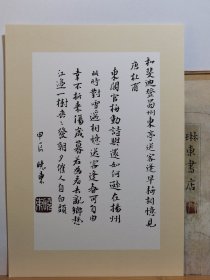 和裴迪登蜀州東亭送客逢早梅相憶見
唐杜甫
東閣官梅動詩興還如何遜在揚州
此時對雪遥相憶送客逢春可自由
幸不折来傷歲暮若為看去亂鄉愁
江邊一樹垂垂發朝夕催人自白頭
甲辰 曉東
東書店